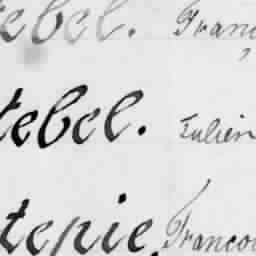 ebel. Franç
tebel. Julien
tepie. Françoi